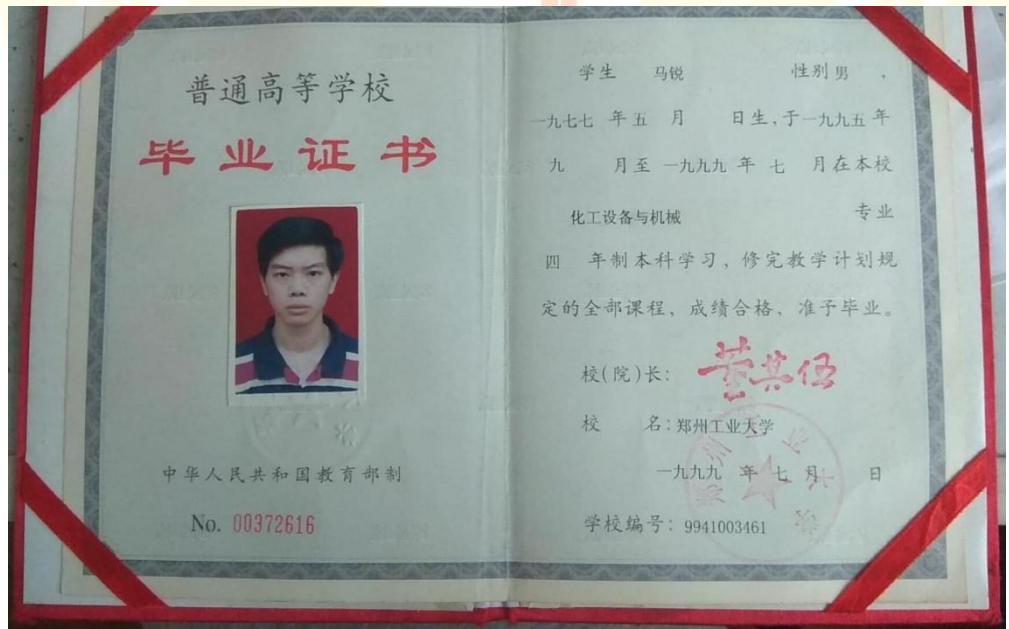 普通高等学校
毕业证书
中华人民共和国教育部制
No. 00372616
学生 马锐 性别 男 ，
一九七七 年 五 月 日生，于 一九九五 年
九 月至 一九九九 年 七 月在本校
化工设备与机械 专业
四 年制本科学习、修完教学计划规
定的全部课程、成绩合格、准予毕业。
校(院)长：董其伍
校 名：郑州工业大学
一九九九 年 七 月 日
学校编号：9941003461